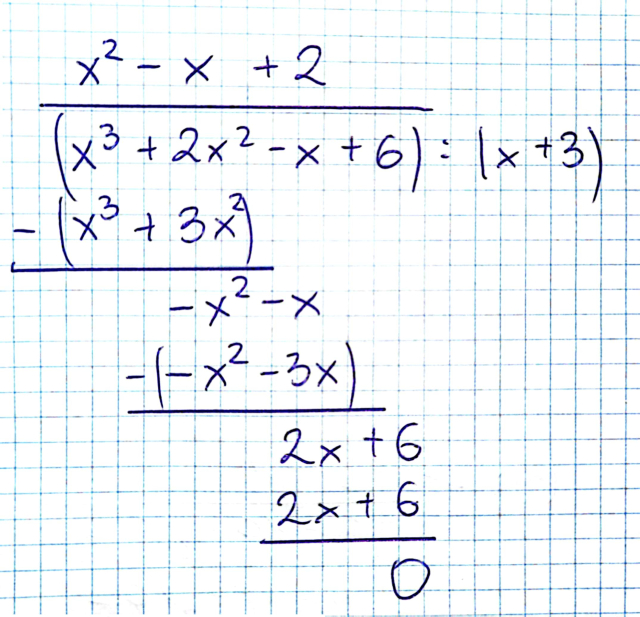 x² - x + 2
(x³ + 2x² - x + 6) : (x + 3)
- (x³ + 3x²)
- x² - x
- (- x² - 3x)
2x + 6
2x + 6
0